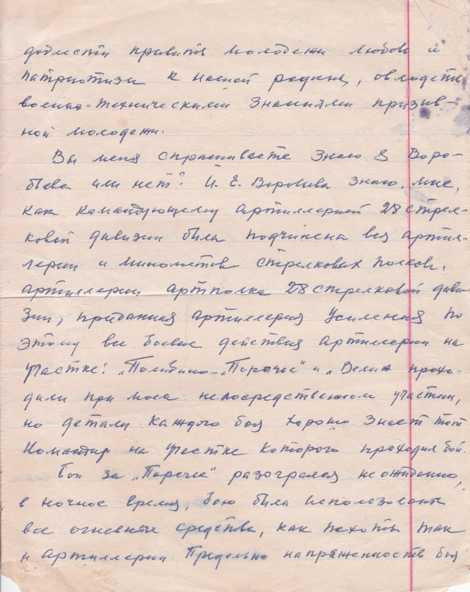 привить молодежи любовь и
патриотизм к нашей родине, овладеть
военно-техническими знаниями призыв-
ной молодежи.
Вы меня спрашиваете знаю я Воро-
бьева или нет? И. Е. Воробьева знаю, мне,
как командующему артиллерией 28 стрел-
ковой дивизии была подчинена вся артил-
лерия и минометов стрелковых полков,
артиллерии артполка 28 стрелковой диви-
зии, приданная артиллерия усиления по
этому все боевые действия артиллерии на
участке: "Поречье" и прохо-
дили при моем непосредственном участии,
но детали каждого боя хорошо знает тот
командир на участке которого проходил бой.
Бой за "Поречье" разогрелся неожиданно,
в ночное время, были использованы
все огневые средства, как пехоты так
и артиллерии предельно напряженность боя